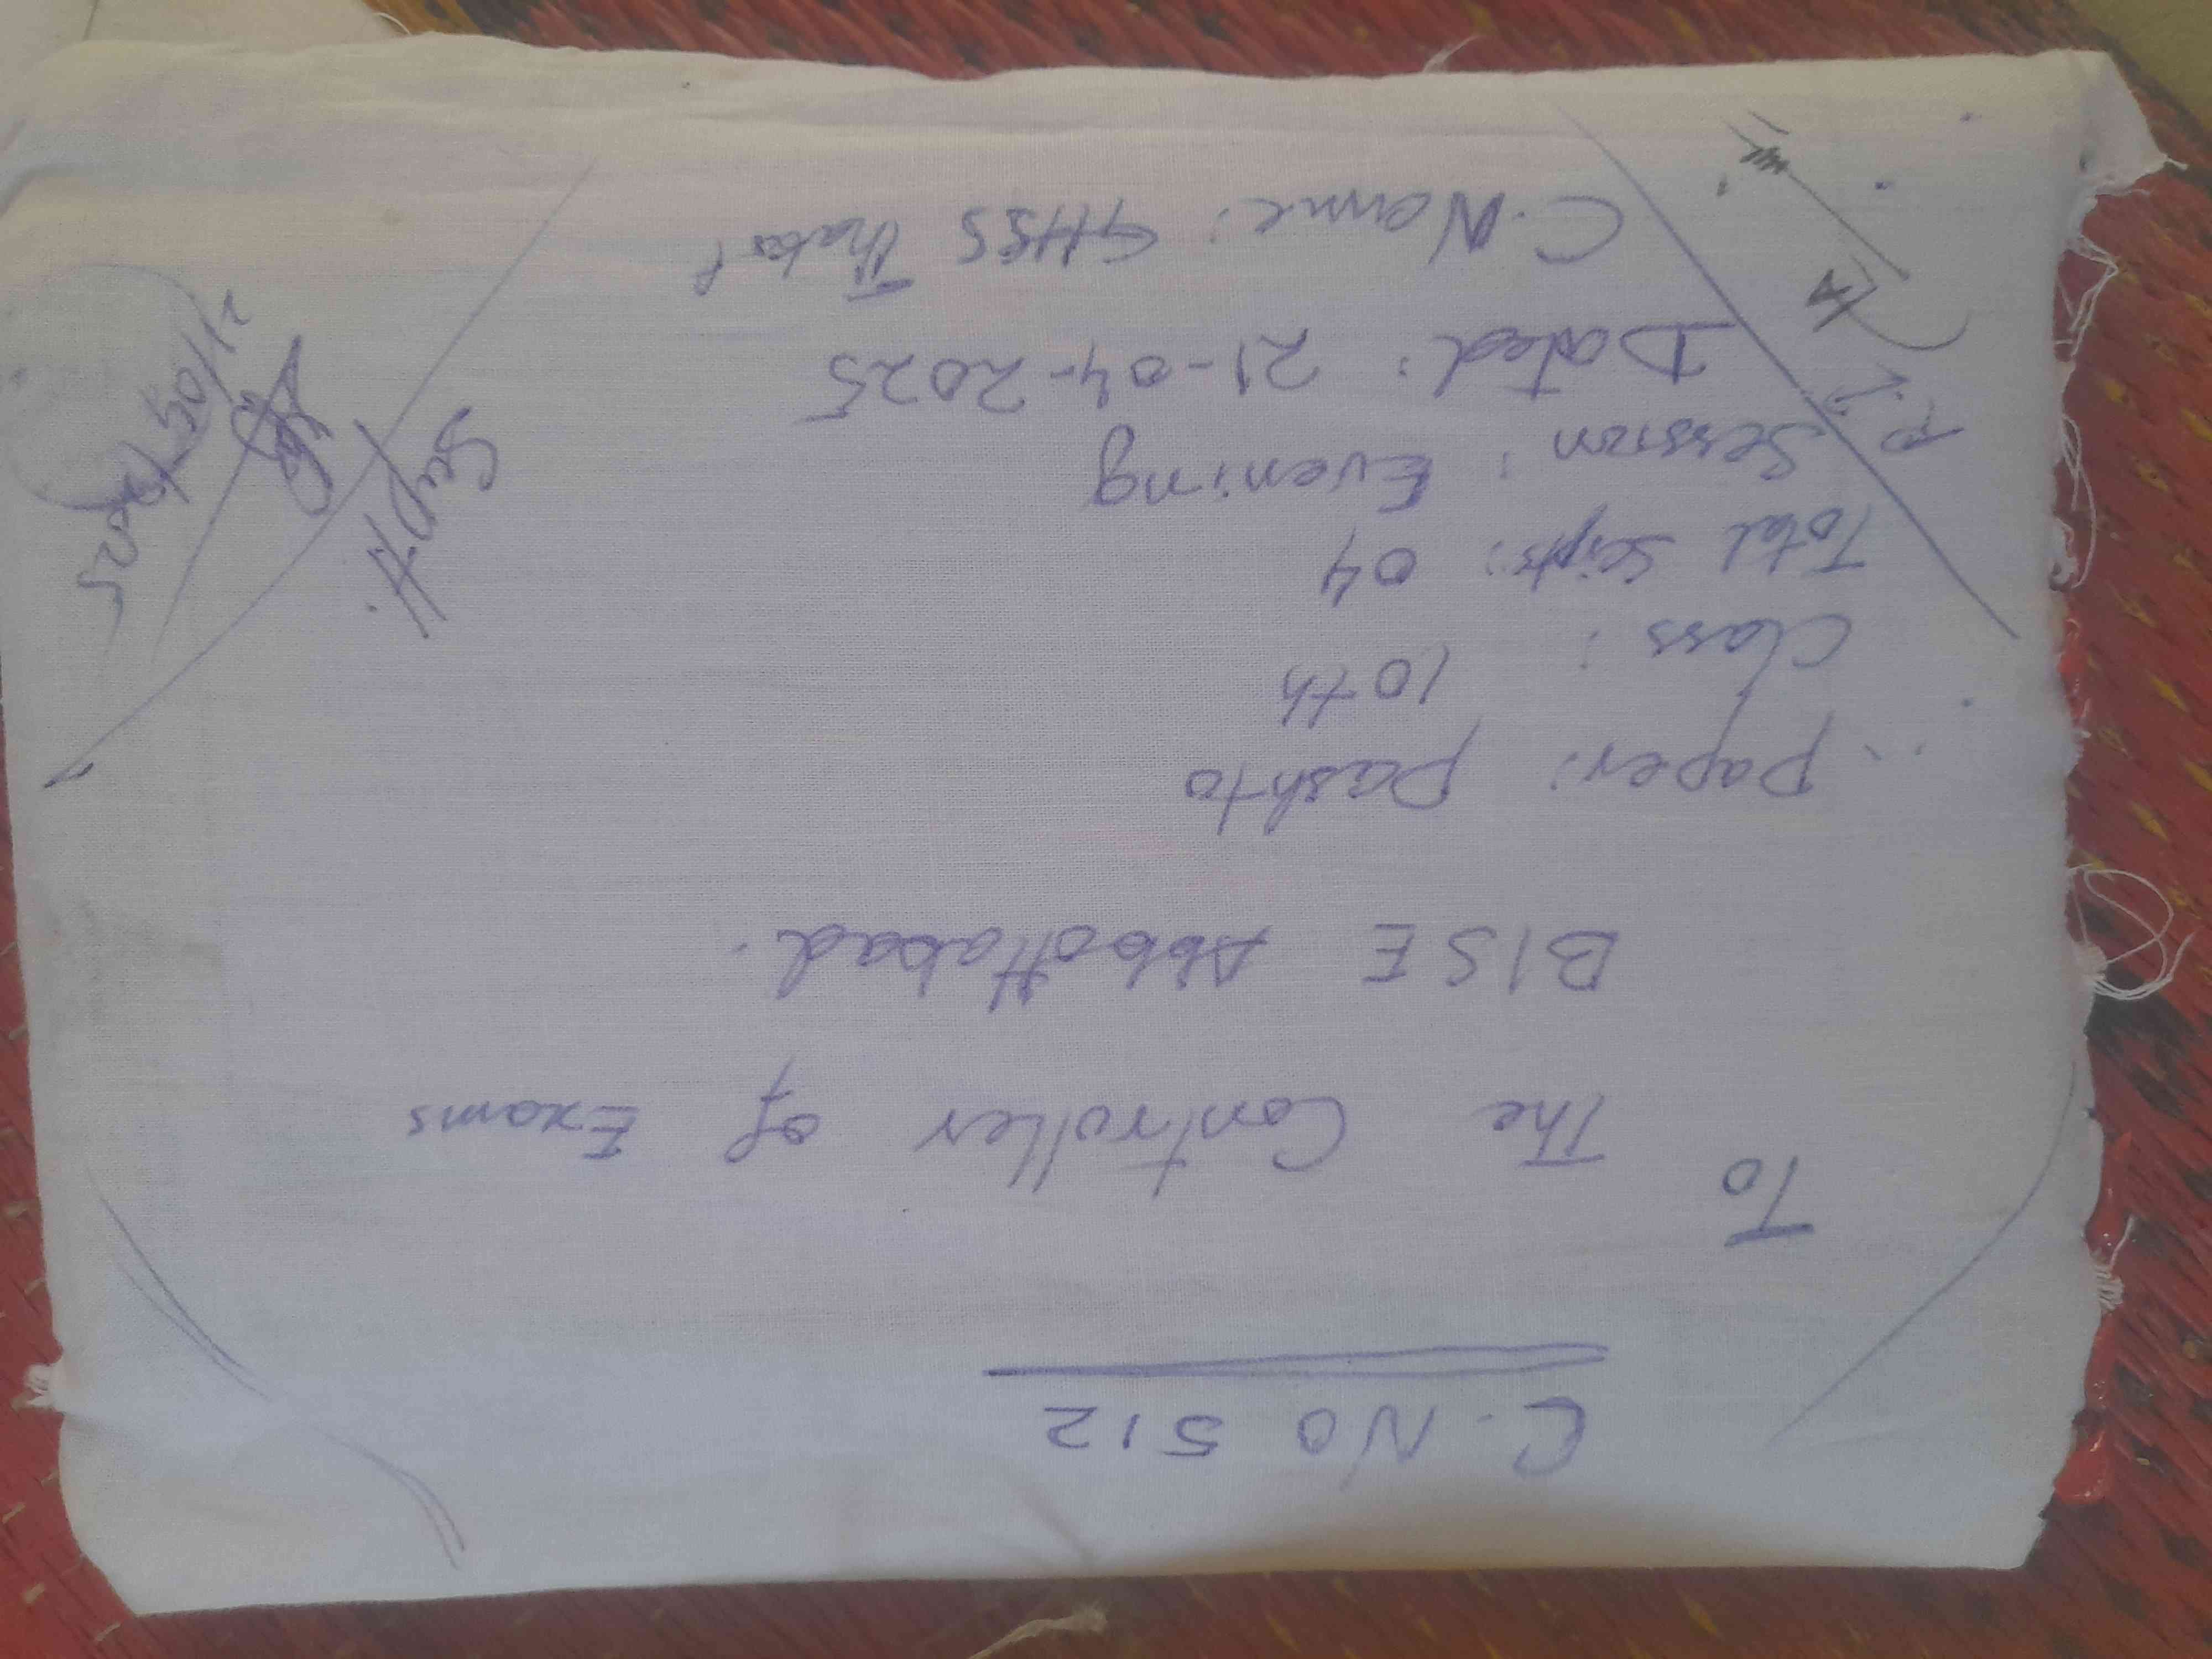 C. No 512
To
The Controller of Exams
BISE Abbottabad.
Paper: Pashto
Class: 10th
Total Scipts: 04
Session: Evening
Dated: 21-04-2025
C. Name: GHSS
R.I
Supdtt: